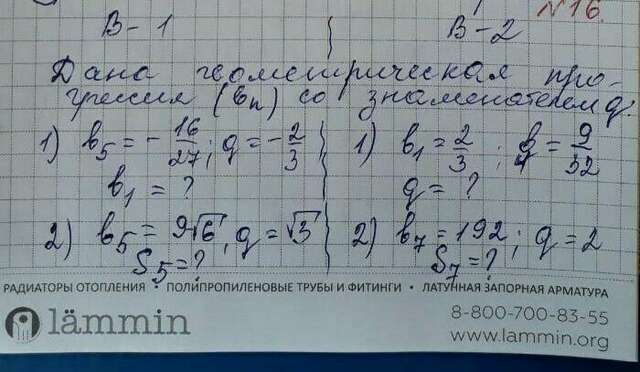 №16.
В-1
В-2
Дана геометрическая про-
грессия (bn) со знаменателем q.
1) b5 = - 16/27; q = - 2/3
b1 = ?
2) b5 = 9√6, q = √3
S5 = ?
1) b1 = 2/3; b4 = 9/32
q = ?
2) b7 = 192; q = 2
S7 = ?
РАДИАТОРЫ ОТОПЛЕНИЯ • ПОЛИПРОПИЛЕНОВЫЕ ТРУБЫ И ФИТИНГИ • ЛАТУННАЯ ЗАПОРНАЯ АРМАТУРА
lämmin
8-800-700-83-55
www.lammin.org